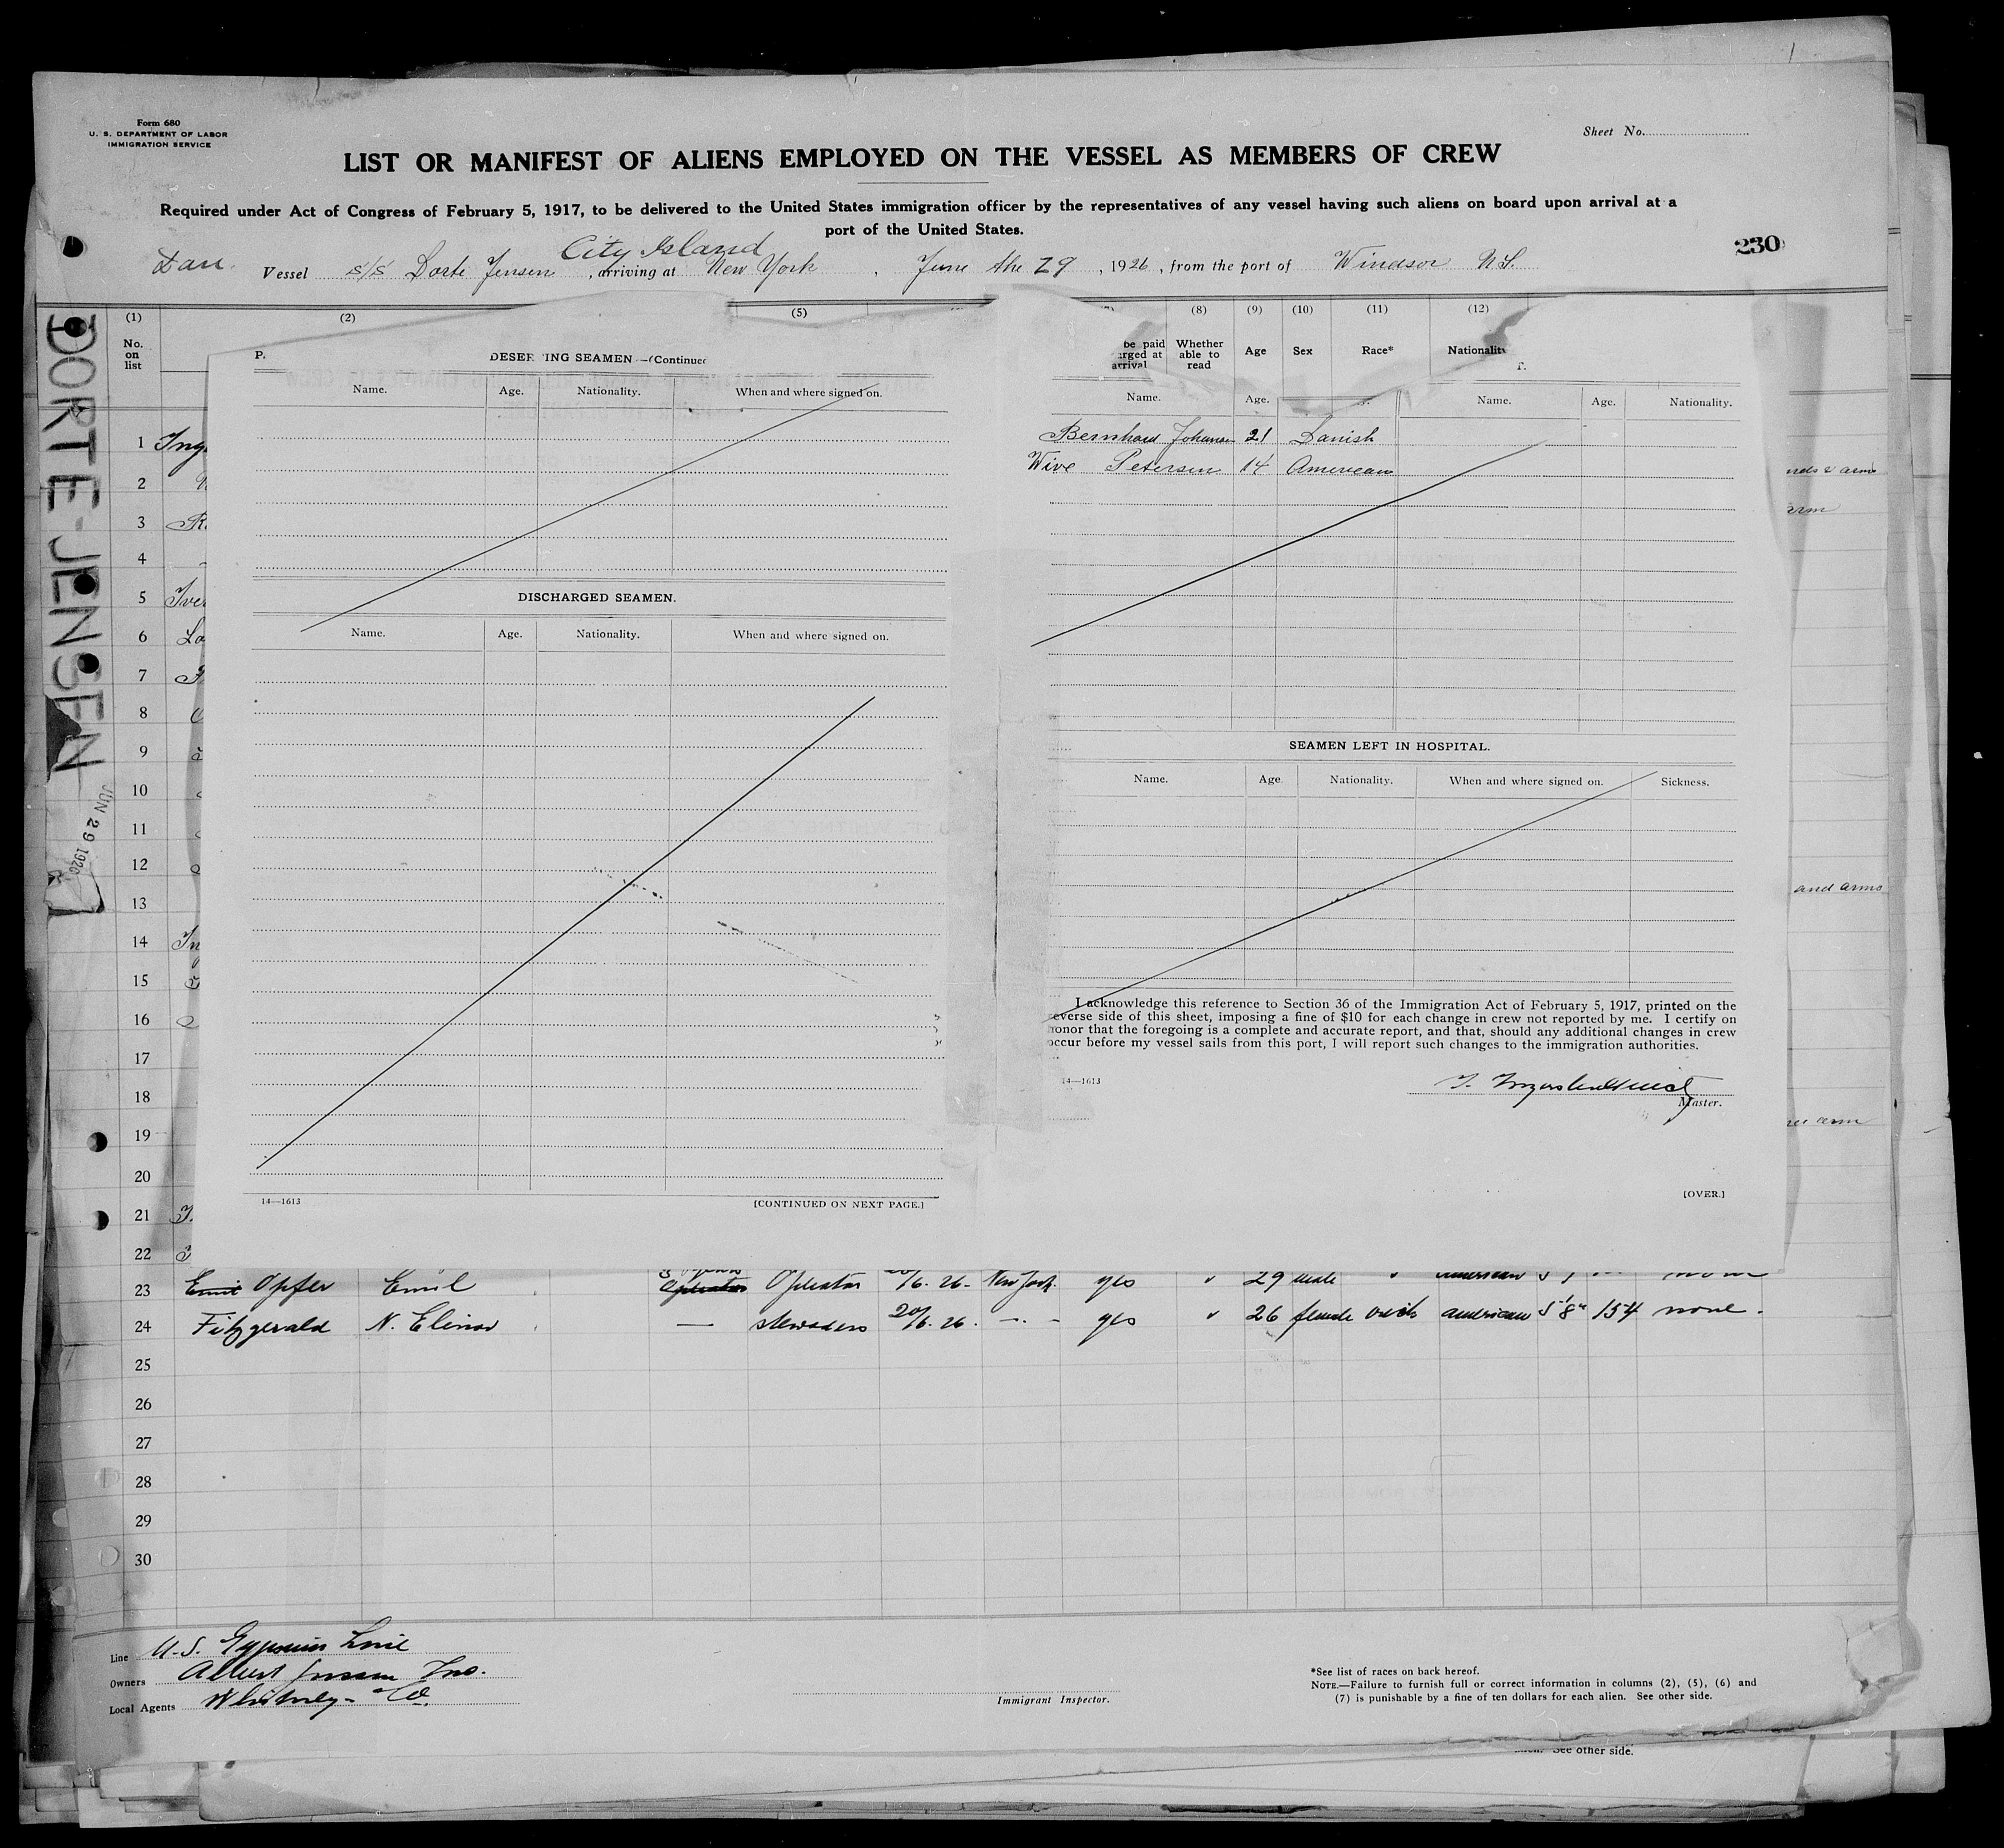 Form 680
U. S. DEPARTMENT OF LABOR
IMMIGRATION SERVICE
Sheet No.
LIST OR MANIFEST OF ALIENS EMPLOYED ON THE VESSEL AS MEMBERS OF CREW
Required under Act of Congress of February 5, 1917, to be delivered to the United States immigration officer by the representatives of any vessel having such aliens on board upon arrival at a
port of the United States.
230
City Island
Dan. Vessel s/s Dorte Jensen, arriving at New York, June the 29, 1926, from the port of Windsor N.S.
DORTE-JENSEN
JUN 29 1926
(1) (2) (5) (8) (9) (10) (11) (12)
No. on list
be paid
arrival
Whether able to read
Age
Sex
Race*
DESERTING SEAMEN—(Continued
Name. Age. Nationality. When and where signed on.
DISCHARGED SEAMEN.
Name. Age. Nationality. When and where signed on.
14—1613
[CONTINUED ON NEXT PAGE.]
Name. Age. Name. Age. Nationality.
Bernhard Johansen 21 Danish
Wive Petersen 14 American
SEAMEN LEFT IN HOSPITAL.
Name. Age. Nationality. When and where signed on. Sickness.
I acknowledge this reference to Section 36 of the Immigration Act of February 5, 1917, printed on the
reverse side of this sheet, imposing a fine of $10 for each change in crew not reported by me. I certify on
honor that the foregoing is a complete and accurate report, and that, should any additional changes in crew
occur before my vessel sails from this port, I will report such changes to the immigration authorities.
14—1613
Master.
[OVER.]
1
2
3
4
5
6
7
8
9
10
11
12
13
14
15
16
17
18
19
20
21
22
23 Opfer Emil Operator 26 New York yes 29 male american
24 Fitzgerald N. Elinor — stewardess 20/6. 26. yes 26 female irish american 5'8" 154 none.
25
26
27
28
29
30
and arms
arm
Line U.S. Gypsum Line
Owners Albert Jensen Inc.
Local Agents Whitney & Co.
Immigrant Inspector.
*See list of races on back hereof.
NOTE.—Failure to furnish full or correct information in columns (2), (5), (6) and
(7) is punishable by a fine of ten dollars for each alien. See other side.
See other side.